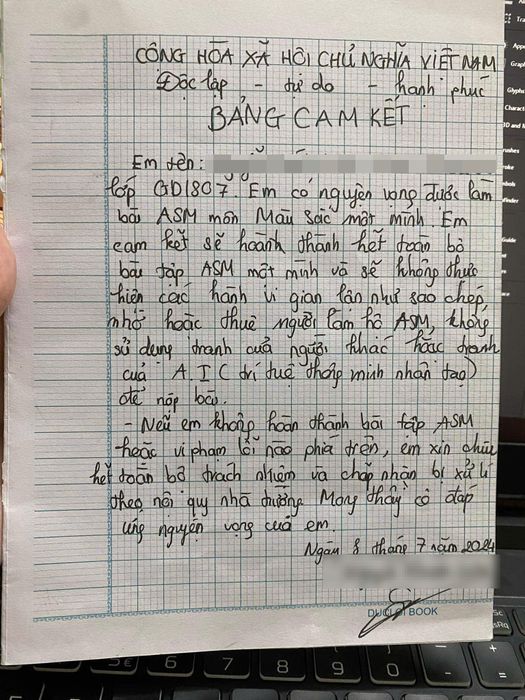 CÔNG HÒA XÃ HÔI CHỦ NGHĨA VIỆT NAM
Độc lập - tự do - hạnh phúc
BẢNG CAM KẾT
Em tên:
lớp GD1807. Em có nguyện vọng được làm
bài ASM môn Màu sắc một mình. Em
cam kết sẽ hoành thành hết toàn bộ
bài tập ASM một mình và sẽ không thực
hiện các hành vi gian lận như sao chép,
nhờ hoặc thuê người làm hộ ASM, không
sử dụng tranh của người khác hoặc tranh
của A.I ( trí tuệ thông minh nhân tạo)
để nộp bài.
- Nếu em không hoàn thành bài tập ASM
hoặc vi phạm lỗi nào phía trên, em xin chịu
hết toàn bộ trách nhiệm và chấp nhận bị xử lí
theo nội quy nhà trường. Mong thầy cô đáp
ứng nguyện vọng của em.
Ngày 8 tháng 7 năm 2024
BOOK
5 €
6
7
8
9
0